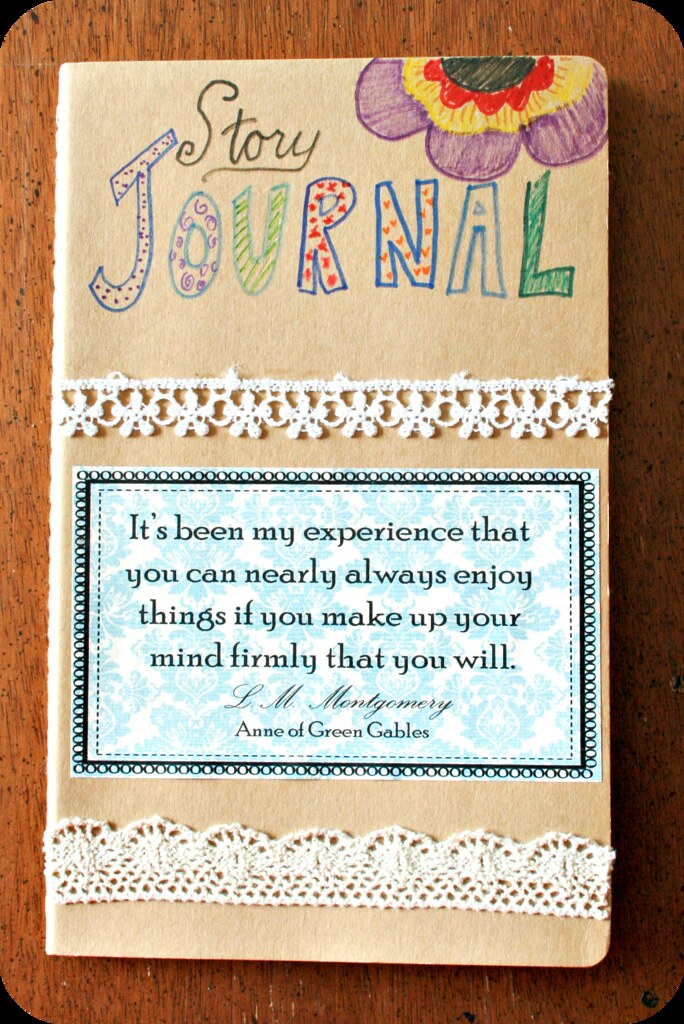 Story
JOURNAL
It's been my experience that
you can nearly always enjoy
things if you make up your
mind firmly that you will.
L. M. Montgomery
Anne of Green Gables